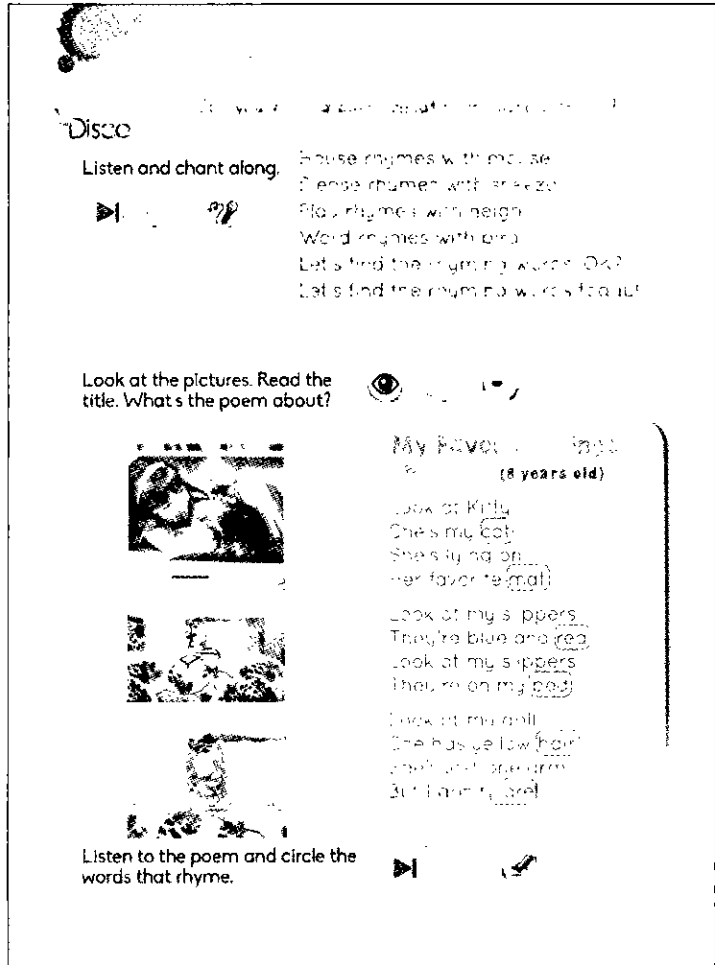 Disco
Listen and chant along.
House rhymes with mouse
rhymes with sneeze
Play rhymes with neigh
Word rhymes with bird
Let's find the rhyming words OK?
Let's find the rhyming words
Look at the pictures. Read the
title. What's the poem about?
My
(8 years old)
Look at Kitty
She's my cat
She's lying on
Her favorite mat
Look at my slippers
They're blue and red
Look at my slippers
They're on my bed
Look at my doll
She has yellow hair
one arm
But I don't
Listen to the poem and circle the
words that rhyme.